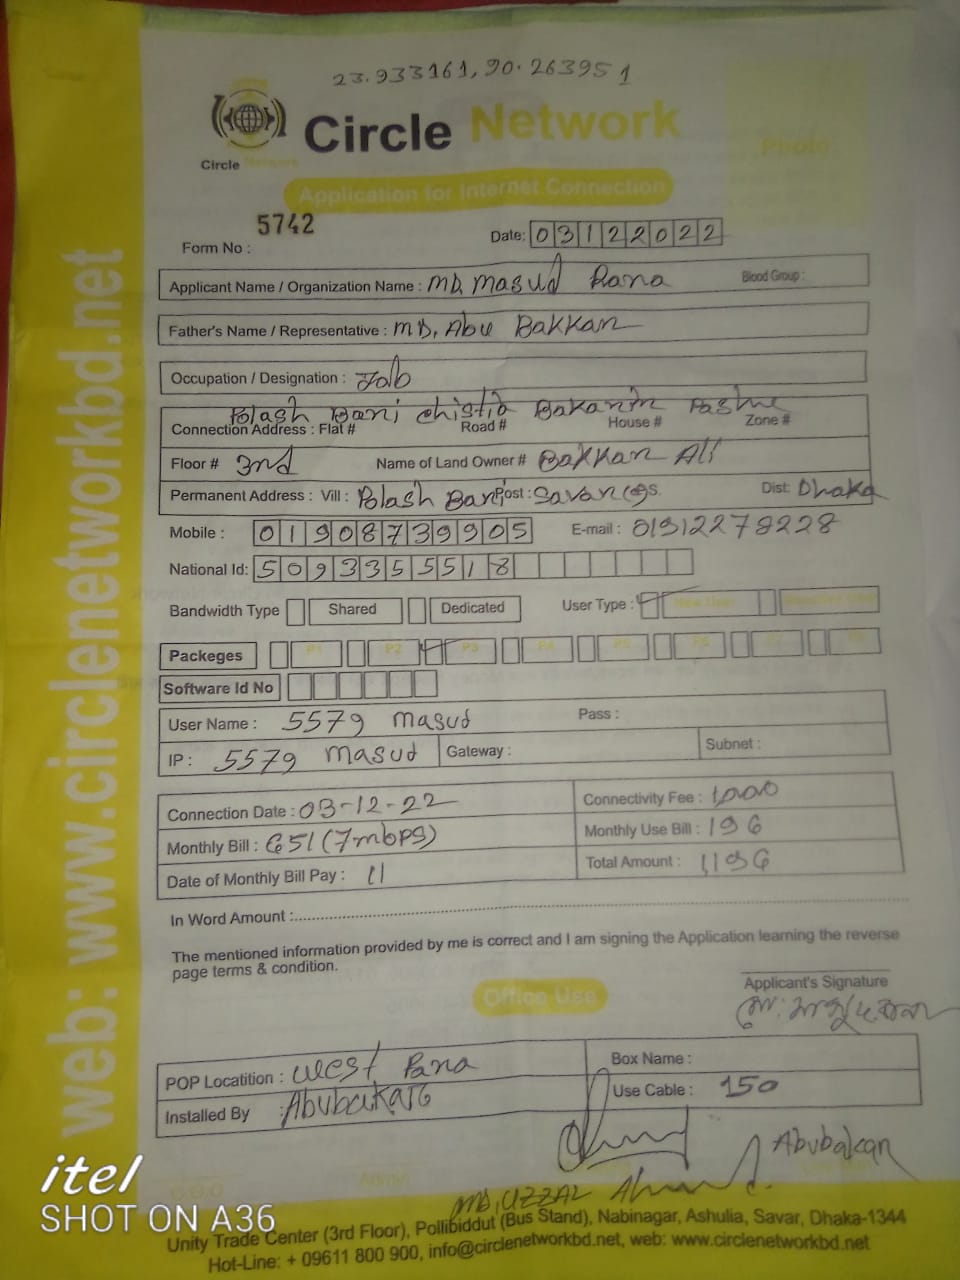 23.933161, 90.263951
Circle Network
Circle Network
Photo
Application for Internet Connection
5742
Form No :
Date: 03122022
Applicant Name / Organization Name : MD. Masud Rana Blood Group :
Father's Name / Representative : MD. Abu Bakkar
Occupation / Designation : Job
Polash Bari Chistia Bakarir Pashe
Connection Address : Flat # Road # House # Zone #
Floor # 3rd Name of Land Owner # Bakkar Ali
Permanent Address : Vill : Polash Bari Post : Savar Dist: Dhaka
Mobile : 01908739905 E-mail : 01912278228
National Id: 5093355518
Bandwidth Type Shared Dedicated User Type : New User
Packeges P1 P2 P3 P4 P5 P6 P7 P8
Software Id No
User Name : 5579 masud Pass :
IP : 5579 masud Gateway : Subnet :
Connection Date : 03-12-22 Connectivity Fee : 1,000
Monthly Bill : 651 (7mbps) Monthly Use Bill : 196
Date of Monthly Bill Pay : 11 Total Amount : 1,196
In Word Amount :
The mentioned information provided by me is correct and I am signing the Application learning the reverse
page terms & condition.
Applicant's Signature
Office Use
POP Locatition : West Para Box Name :
Installed By : Abubakar Use Cable : 150
Abubakar
Admin
MD. UZZAL Ahmmed
Unity Trade Center (3rd Floor), Pollibiddut (Bus Stand), Nabinagar, Ashulia, Savar, Dhaka-1344
Hot-Line: + 09611 800 900, info@circlenetworkbd.net, web: www.circlenetworkbd.net
web: www.circlenetworkbd.net
itel
SHOT ON A36